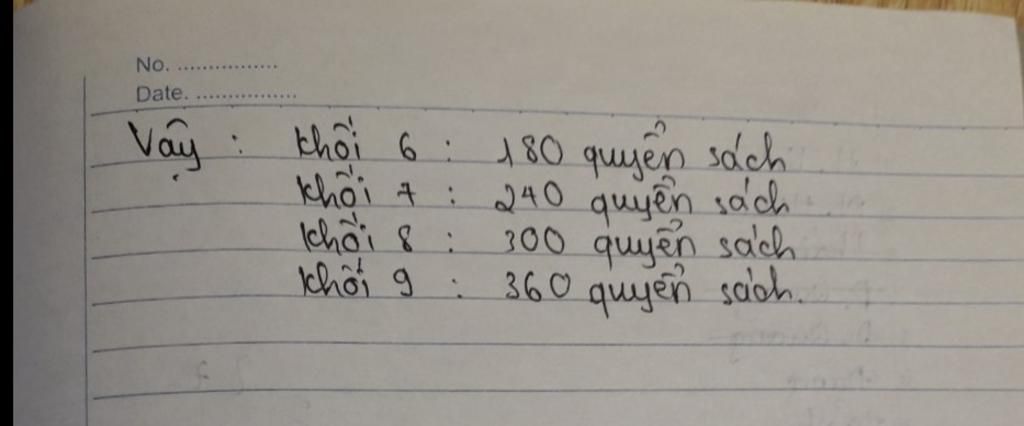 No. ................
Date. ................
Vậy : Khối 6 : 180 quyển sách
Khối 7 : 240 quyển sách
Khối 8 : 300 quyển sách
Khối 9 : 360 quyển sách.